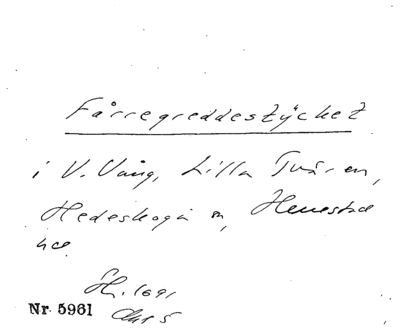 Fårregreddestycket
i V. Vång, Lilla Tvären,
Hedeskoga sn, Herrestad
hd.
Sk. 1691
Akt 5
Nr 5961